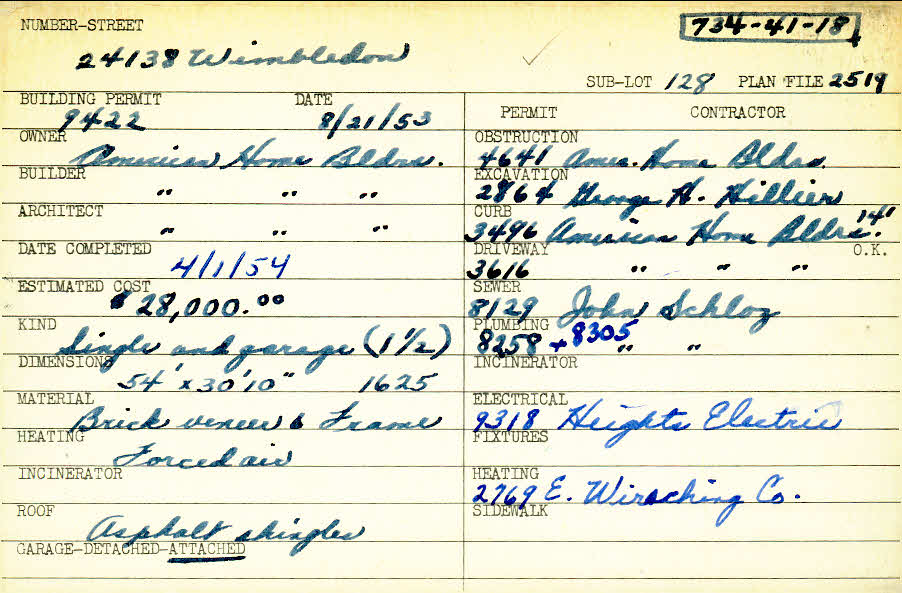 NUMBER-STREET
734-41-18
24138 Wimbledon
SUB-LOT 128 PLAN FILE 2519
BUILDING PERMIT DATE
9422 8/21/53
OWNER
American Home Bldrs.
BUILDER
" " "
ARCHITECT
" " "
DATE COMPLETED
4/1/54
ESTIMATED COST
$28,000.00
KIND
Single and garage (1 1/2)
DIMENSIONS
54' x 30'10" 1625
MATERIAL
Brick veneer & Frame
HEATING
Forced air
INCINERATOR
ROOF
Asphalt shingles
GARAGE-DETACHED-ATTACHED
PERMIT CONTRACTOR
OBSTRUCTION
4641 Amer. Home Bldrs.
EXCAVATION
2864 George H. Hillier
CURB
3496 American Home Bldrs. 14'
DRIVEWAY O.K.
3616 " " "
SEWER
8129 John Schloz
PLUMBING
8258 + 8305 " "
INCINERATOR
ELECTRICAL
9318 Heights Electric
FIXTURES
HEATING
2769 E. Wirsching Co.
SIDEWALK